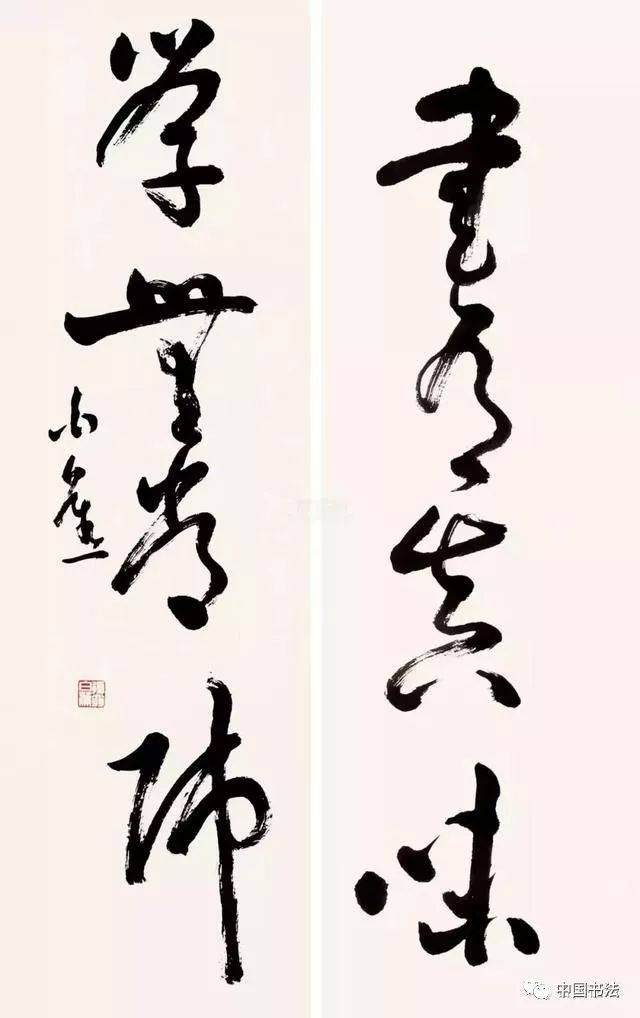 書有真味
學無常師
白蕉
中国书法